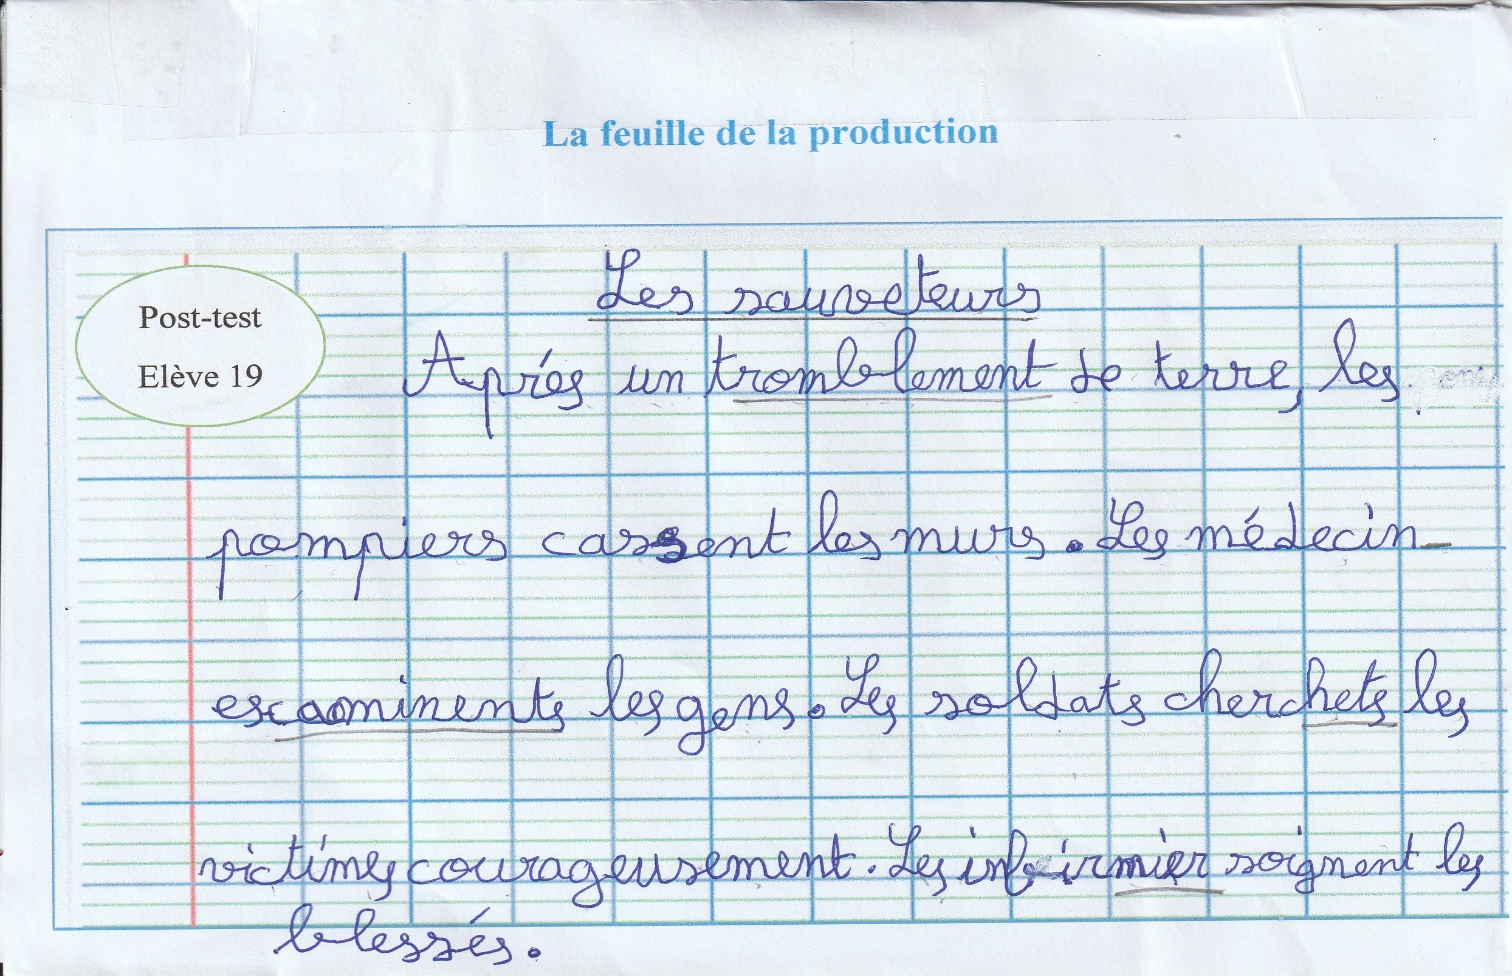 La feuille de la production
Post-test
Elève 19
Les sauveteurs
Aprés un tromblement de terre, les
pompiers cassent les murs. Les médecin
escaminents les gens. Les soldats cherchets les
victimes courageusement. Les infirmier soignent les
blessés.